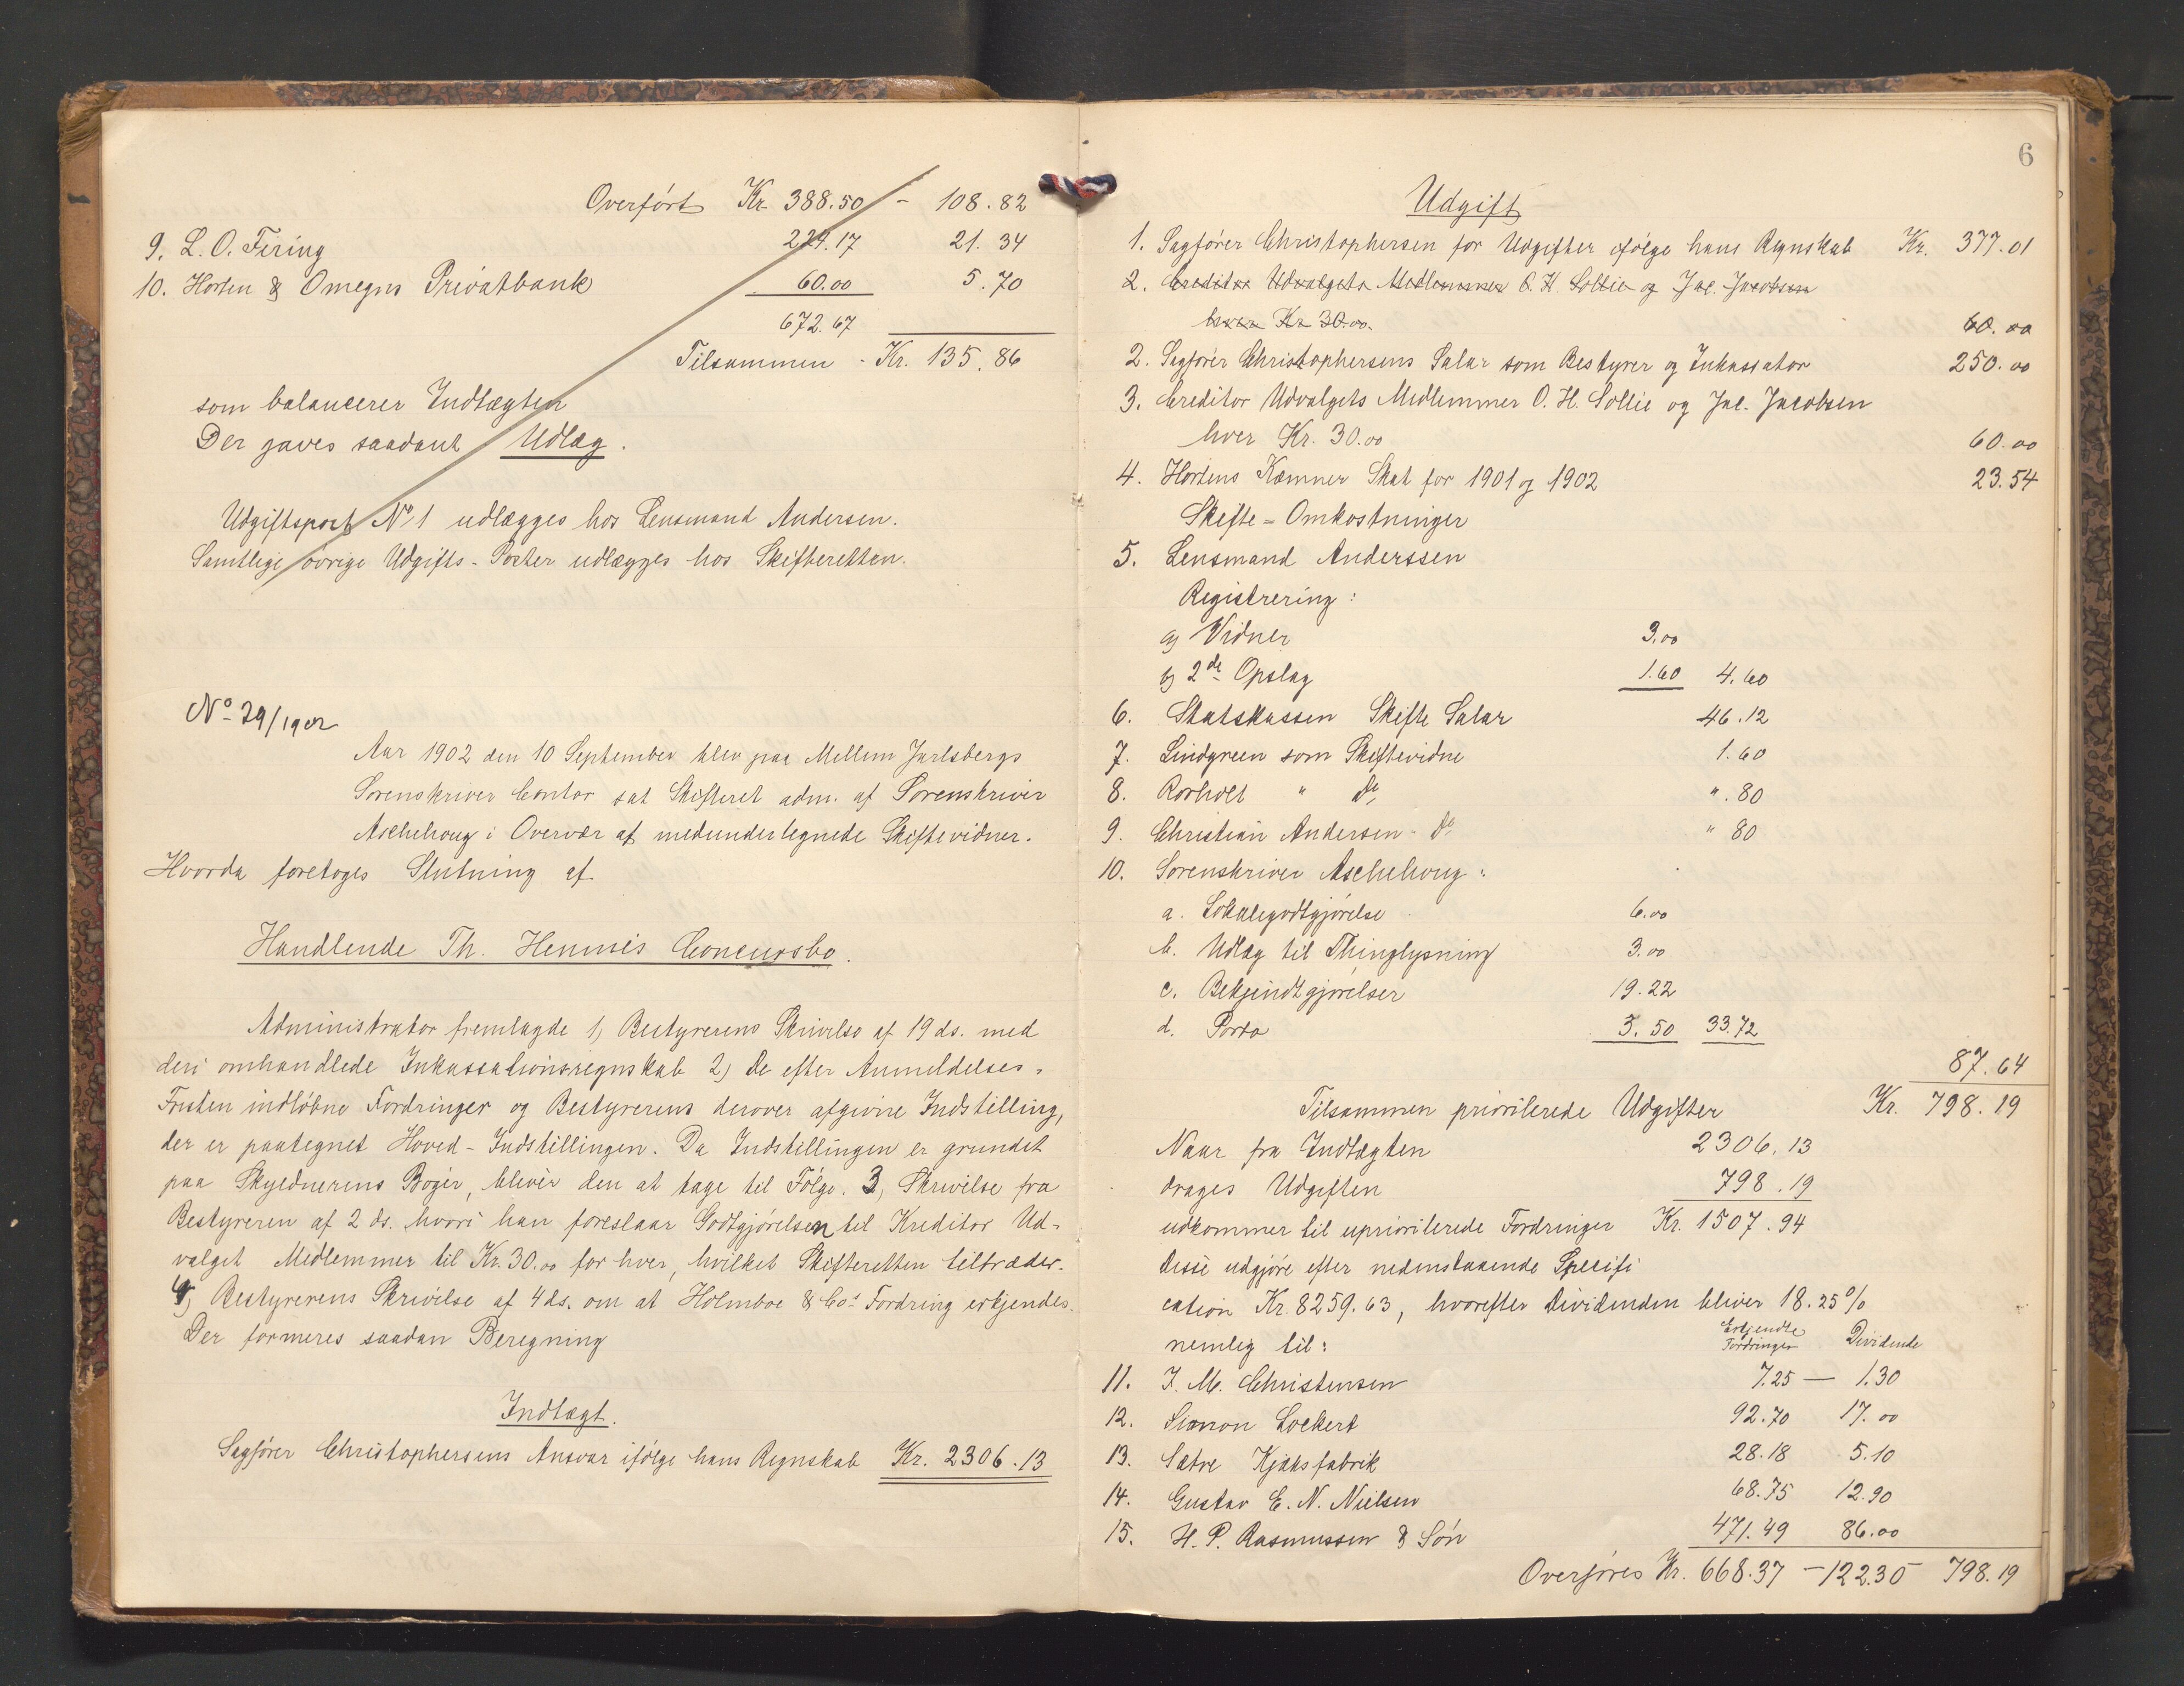 Overført Kr. 388.50 - 108.82
9. L. O. Firing 224.17 21.34
10. Horten & Omegns Privatbank 60.00 5.70
672.67
Tilsammen - Kr. 135.86
som balancerer Indtægten
Der gaves saadant Udlæg.
Udgiftspost No 1 udlægges hos Lensmand Andersen.
Samtlige øvrige Udgifts-Poster udlægges hos Skifteretten.
No 29/1902
Aar 1902 den 10 September blev paa Mellem Jarlsbergs
Sorenskriver Contor sat Skifteret adm. af Sorenskriver
Aschehoug i Overvær af medundertegnede Skiftevidner.
Hvorda foretoges Slutning af
Handlende Th. Hennies Concursbo.
Administrator fremlagde 1) Bestyrerens Skrivelse af 19 ds. med
deri omhandlede Inkassationsregnskab 2) De efter Anmeldelses-
Fristen indløbne Fordringer og Bestyrerens derover afgivne Indstilling,
der er paategnet Hoved-Indstillingen. Da Indstillingen er grundet
paa Skyldnerens Bøger, bliver den at tage til Følge. 3, Skrivelse fra
Bestyreren af 2 ds. hvori han foreslaar Godtgjørelsen til Kreditor Ud-
valget Medlemmer til Kr. 30.00 for hver, hvilket Skifteretten tiltræder.
4) Bestyrerens Skrivelse af 4 ds. om at Holmboe & Cos Fordring erkjendes.
Der formeres saadan Beregning
Indtægt.
Sagfører Christophersens Ansvar ifølge hans Regnskab Kr. 2306.13
6
Udgift
1. Sagfører Christophersen for Udgifter ifølge hans Regnskab Kr. 377.01
2. Creditor Udvalgets Medlemmer O. H. Sollie og Jac. Jacobsen
hver Kr 30.00. 60.00
2. Sagfører Christophersens Salær som Bestyrer og Inkassator 250.00
3. Creditor Udvalgets Medlemmer O. H. Sollie og Jac. Jacobsen
hver Kr. 30.00 60.00
4. Hortens Kæmner Skat for 1901 og 1902 23.54
Skifte-Omkostninger
5. Lensmand Anderssen
Registrering:
a) Vidner 3.00
b) 2de Opslag 1.60 4.60
6. Statskassen Skifte Salær 46.12
7. Lindgreen som Skiftevidne 1.60
8. Rorholt " do " .80
9. Christian Andersen - do " 80
10. Sorenskriver Aschehoug:
a. Lokalegodtgjørelse 6.00
b. Udlæg til Thinglysning 3.00
c. Bekjendtgjørelser 19.22
d. Porto 5.50 33.72
87.64
Tilsammen prioriterede Udgifter Kr. 798.19
Naar fra Indtægten 2306.13
drages Udgiften 798.19
udkommer til uprioriterede Fordringer Kr. 1507.94
Disse udgjøre efter nedenstaaende Specifi
cation Kr. 8259.63, hvorefter Dividenden bliver 18.25%
nemlig til: Erkjendte Fordringer Dividende
11. J. M. Christensen 7.25 — 1.30
12. Simon Lockert 92.70 17.00
13. Sætre Kjæksfabrik 28.18 5.10
14. Gustav E. N. Nielsen 68.75 12.90
15. H. P. Rasmussen & Søn 471.49 86.00
Overføres Kr. 668.37 - 122.30 798.19